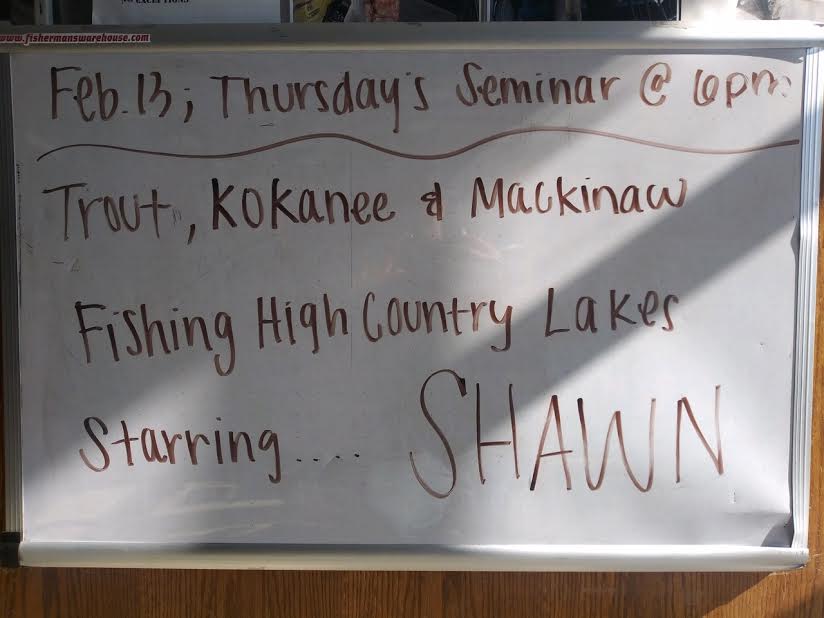 NO EXCEPTIONS
www.fishermanswarehouse.com
Feb. 13; Thursday's Seminar @ 6pm
Trout, Kokanee & Mackinaw
Fishing High Country Lakes
Starring.... SHAWN